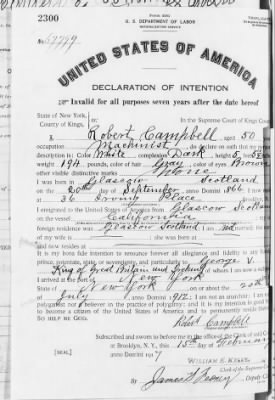 2300
U. S. DEPARTMENT OF LABOR
NATURALIZATION SERVICE
No.
UNITED STATES OF AMERICA
DECLARATION OF INTENTION
Invalid for all purposes seven years after the date hereof
State of New York,
County of Kings,
In the Supreme Court of Kings County
Robert Campbell aged 50
occupation Machinist, do declare on oath that my
description is: Color White complexion Dark height 5
weight 194 pounds, color of hair Gray, color of eyes Brown
other visible distinctive marks None
was born in Glasgow Scotland
on the 20th day of September, anno Domini 1866
at 36 Irving Place
I emigrated to the United States of America from Glasgow Scotland
on the vessel California
foreign residence was Glasgow Scotland, I am not married;
of my wife is she was born at
and now resides at
It is my bona fide intention to renounce forever all allegiance and fidelity to any foreign
prince, potentate, state, or sovereignty, and particularly to George V
King of Great Britain and Ireland, of whom I am now a
I arrived at the port of New York
of New York on or about the 20th
July, anno Domini 1912: I am not an anarchist; I am
polygamist nor a believer in the practice of polygamy; and it is my intention in good
to become a citizen of the United States of America and to permanently reside
SO HELP ME GOD.
Robert Campbell
Subscribed and sworn to before me in the office of the Clerk of
at Brooklyn, N. Y., this 15th day of February
anno Domini 1917
[SEAL]
WILLIAM E. KELLY
Clerk of the Supreme
By James